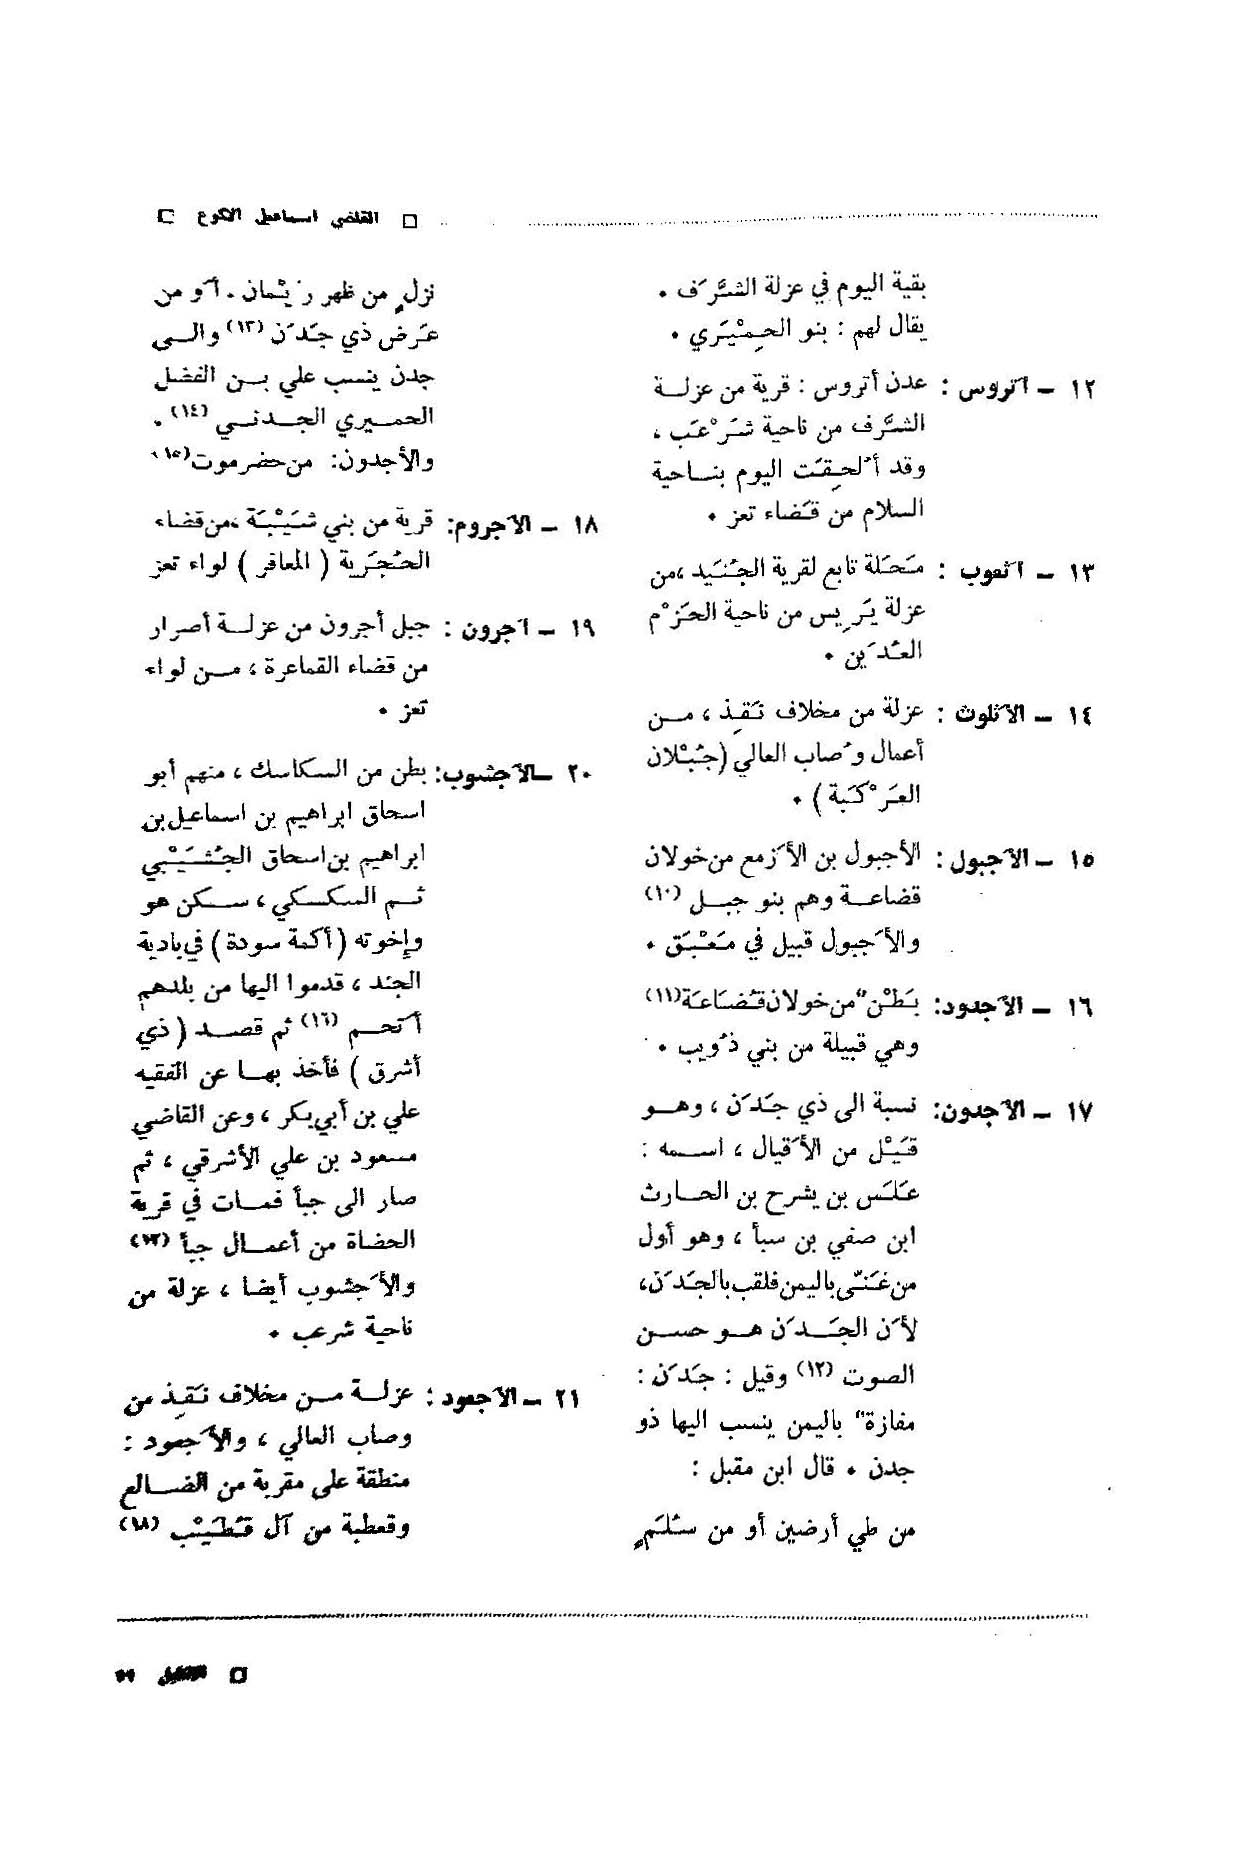 □ القاضي اسماعيل الأكوع □
بقية اليوم في عزلة الشَّرَف .
يقال لهم : بنو الحِمْيَري .
١٢ – أتروس : عدن أتروس : قرية من عزلة
الشَّرف من ناحية شَرْعَب ،
وقد أُلحِقَت اليوم بناحية
السلام من قَضاء تعز .
١٣ – أثعوب : مَحَلة تابع لقرية الجُنَيد ،من
عزلة يَريس من ناحية الحَزْم
العُدَين .
١٤ – الأثلوث : عزلة من مخلاف نَقِذ ، من
أعمال وُصاب العالي (جُبْلان
العَرْكَبة) .
١٥ – الأجبول : الأجبول بن الأَزمع من خولان
قضاعة وهم بنو جبل (١٠)
والأَجبول قبيل في مَعْبَق .
١٦ – الأجدود: بَطْن من خولان قُضَاعَة (١١)
وهي قبيلة من بني ذُويب .
١٧ – الأجدون: نسبة الى ذي جَدَن ، وهو
قَيْل من الأَقيال ، اسمه :
عَلَس بن يشرح بن الحارث
ابن صفي بن سبأ ، وهو أول
من غَنّى باليمن فلقب بالجَدَن،
لأَن الجَدَن هو حسن
الصوت (١٢) وقيل : جَدَن :
مفازة باليمن ينسب اليها ذو
جدن . قال ابن مقبل :
من طي أرضين أو من سُلَّمٍ
نزلٍ من ظهر رَيْمان . أَو من
عَرض ذي جَدَن (١٣) والى
جدن ينسب علي بن الفضل
الحميري الجدني (١٤) .
والأجدون: من حضرموت (١٥)
١٨ – الأجروم: قرية من بني شَيْبَة ،من قضاء
الحُجَرية ( المعافر ) لواء تعز
١٩ – أجرون : جبل أجرون من عزلة أصرار
من قضاء القماعرة ، من لواء
تعز .
٢٠ –الأجشوب: بطن من السكاسك ، منهم أبو
اسحاق ابراهيم بن اسماعيل بن
ابراهيم بن اسحاق الجُشَيْبي
ثم السكسكي ، سكن هو
وإخوته (أكمة سودة) في بادية
الجند ، قدموا اليها من بلدهم
أَتحم (١٦) ثم قصد ( ذي
أشرق ) فأخذ بها عن الفقيه
علي بن أبي بكر ، وعن القاضي
مسعود بن علي الأشرقي ، ثم
صار الى جبأ فمات في قرية
الحضاة من أعمال جبأ (١٧)
والأَجشوب أيضا ، عزلة من
ناحية شرعب .
٢١ – الأجعود : عزلة من مخلاف نَقِذ من
وصاب العالي ، والأَجعود :
منطقة على مقربة من الضالع
وقعطبة من آل قَطَيْب (١٨)
□ الإكليل